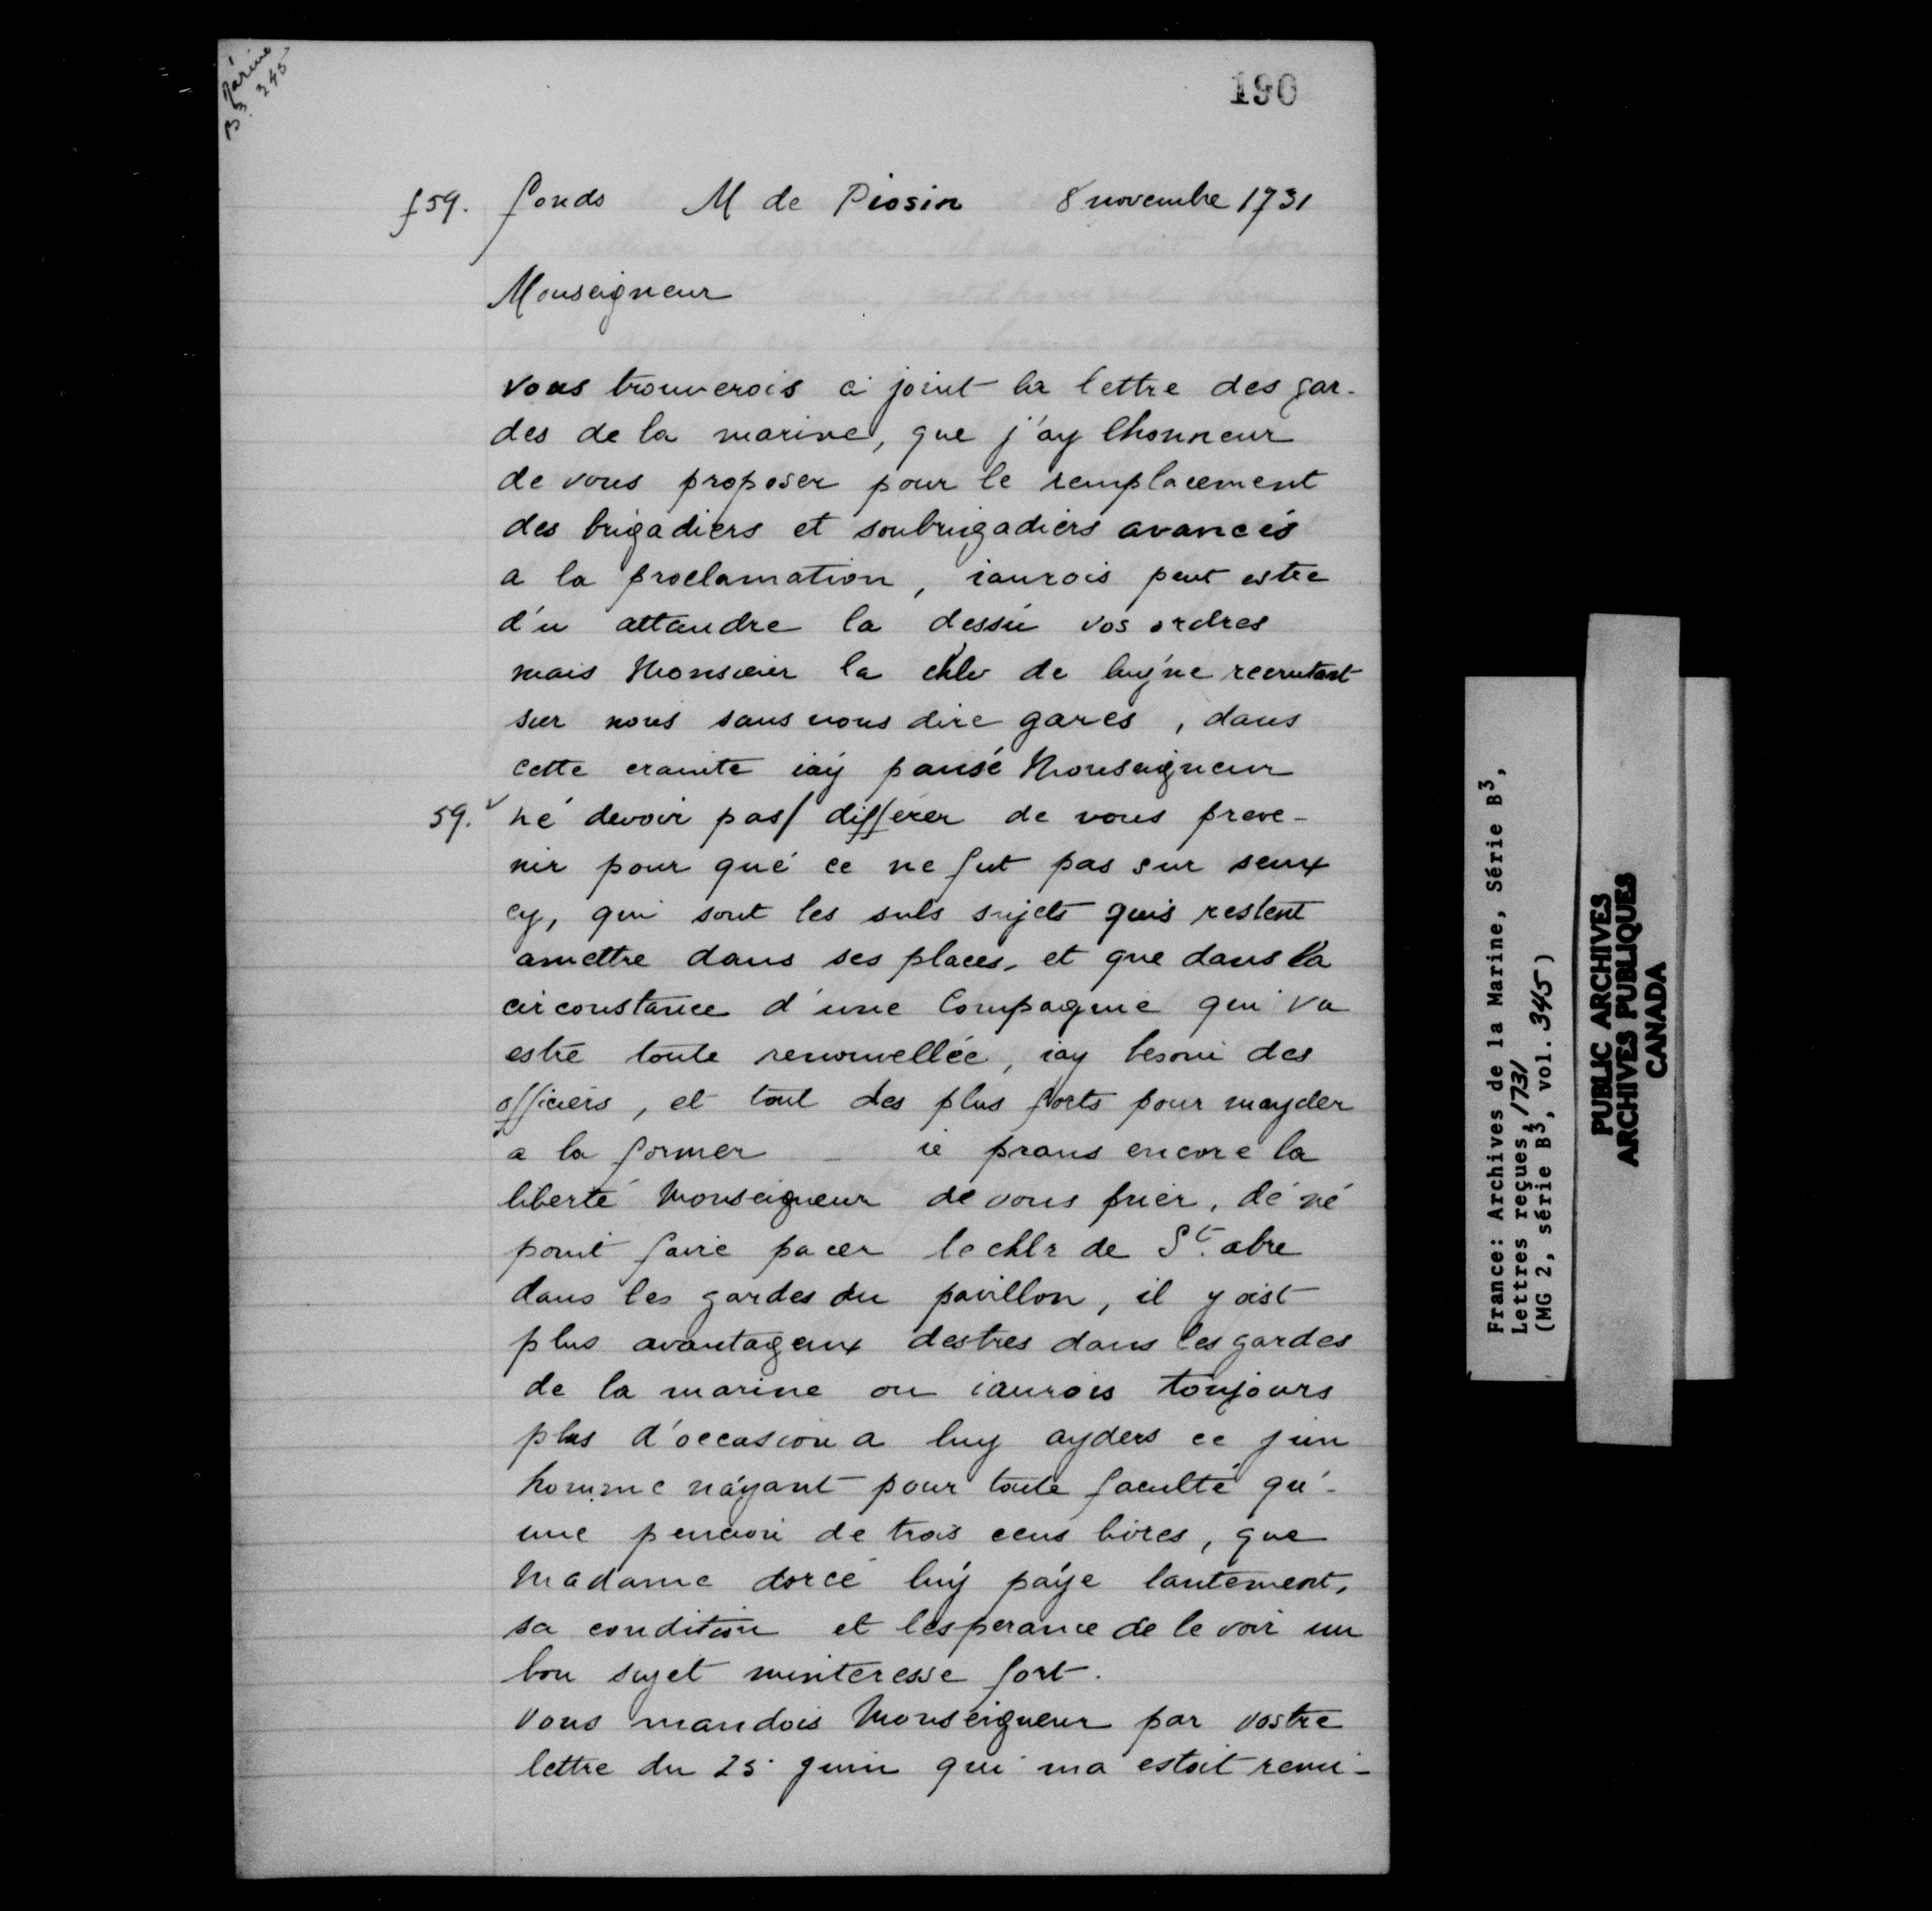 Marine
B3. 345
190
f 59. fonds M de Piosin 8 novembre 1731
Monseigneur
vous trouverois ci joint la lettre des gar-
des de la marine, que j'ay lhonneur
de vous proposer pour le remplacement
des brigadiers et soubrigadiers avancés
a la proclamation, iaurois peut estre
d'u attandre la dessu vos ordres
mais Monsieur la chlv de luÿne recrutant
sur nous sans nous dire gares, dans
cette crainte iaÿ pansé Monseigneur
59. v né devoir pas/ différer de vous preve-
nir pour qué ce ne fut pas sur seux
cy, qui sont les suls sujets quis restent
amettre dans ses places, et que dans la
circonstance d'une Compagnie qui va
estre toute renouvellée, iay besoin des
officiers, et tout des plus forts pour mayder
a la former _ ie prans encore la
liberté Monseigneur de vous prier, dé né
point faire pacer le chlr de St. abre
dans les gardes du pavillon, il y aist
plus avantageux destres dans les gardes
de la marine ou iaurois toujours
plus d'occasion a luy ayders ce jun
homme náyant pour toute faculté qu'-
une pencion de trois cens livres, que
Madame dorcé luÿ paÿe lantement,
sa condition et lesperance de le voir un
bon sujet minteresse fort.
Vous mandois Monseigneur par vostre
lettre du 25 juin qui ma estoit remi-
France: Archives de la Marine, Série B3,
Lettres reçues, 1731
(MG 2, série B3, vol. 345)
PUBLIC ARCHIVES
ARCHIVES PUBLIQUES
CANADA